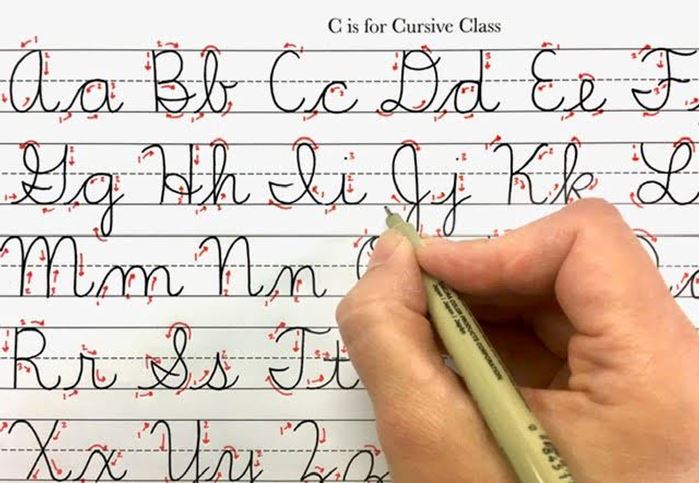 C is for Cursive Class
Aa Bb Cc Dd Ee F
Gg Hh Ii Jj Kk L
Mm Nn
Rr Ss Tt
Xx Yy Zz